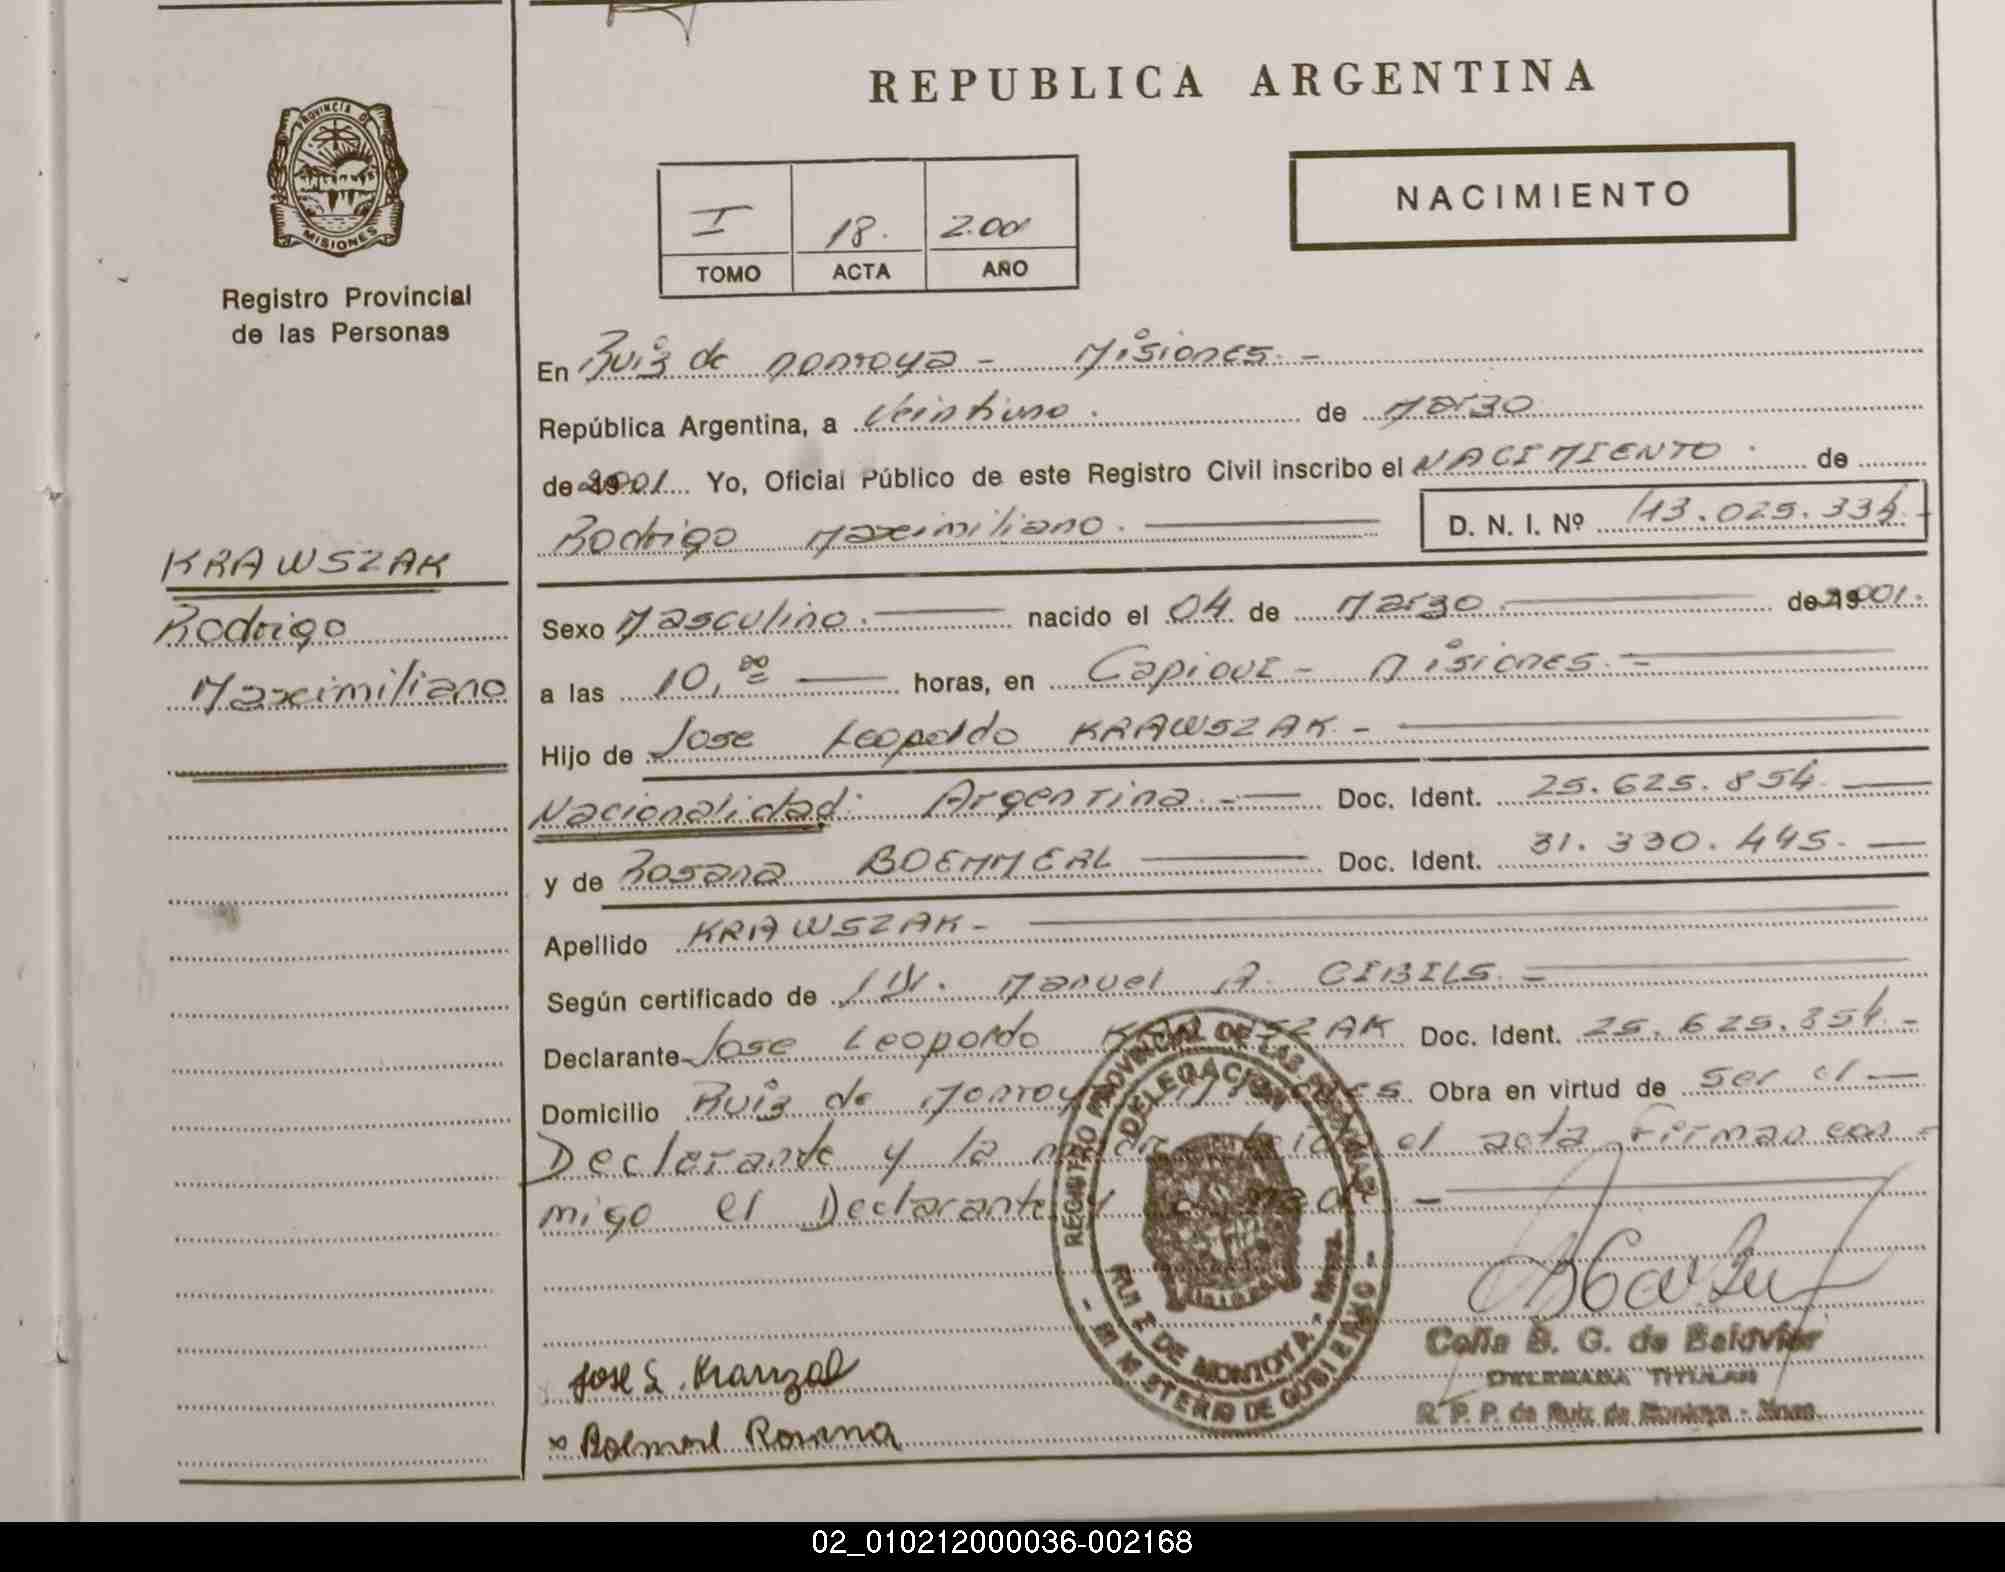 REPUBLICA ARGENTINA
PROVINCIA DE
MISIONES
Registro Provincial
de las Personas
I 18. 2.00
TOMO ACTA AÑO
NACIMIENTO
En Ruiz de Montoya - Misiones. -
República Argentina, a Veintiuno. de Marzo
de 2001. Yo, Oficial Público de este Registro Civil inscribo el NACIMIENTO. de
Rodrigo Maximiliano. D. N. I. Nº 43.025.334.-
KRAWSZAK
Rodrigo
Maximiliano
Sexo Masculino. nacido el 04 de Marzo. de 2001.
a las 10,00 horas, en Capiovi - Misiones. -
Hijo de Jose Leopoldo KRAWSZAK. -
Nacionalidad: Argentina. - Doc. Ident. 25.625.854.
y de Rosana BOEMMERL Doc. Ident. 31.330.445.
Apellido KRAWSZAK -
Según certificado de Manuel A. CIBILS. -
Declarante Jose Leopoldo KRAWSZAK Doc. Ident. 25.625.854. -
Domicilio Ruiz de Montoya Misiones. Obra en virtud de ser el
Declarante y la madre leida el acta Firman con-
migo el Declarante y la madre. -
REGISTRO PROVINCIAL DE LAS PERSONAS
DELEGACION
RUIZ DE MONTOYA - Mnes.
- MINISTERIO DE GOBIERNO -
Celia B. G. de Belovier
DELEGADA TITULAR
R. P. P. de Ruiz de Montoya - Mnes.
Jose L. Krawzak
x Boemerl Rosana
02_010212000036-002168